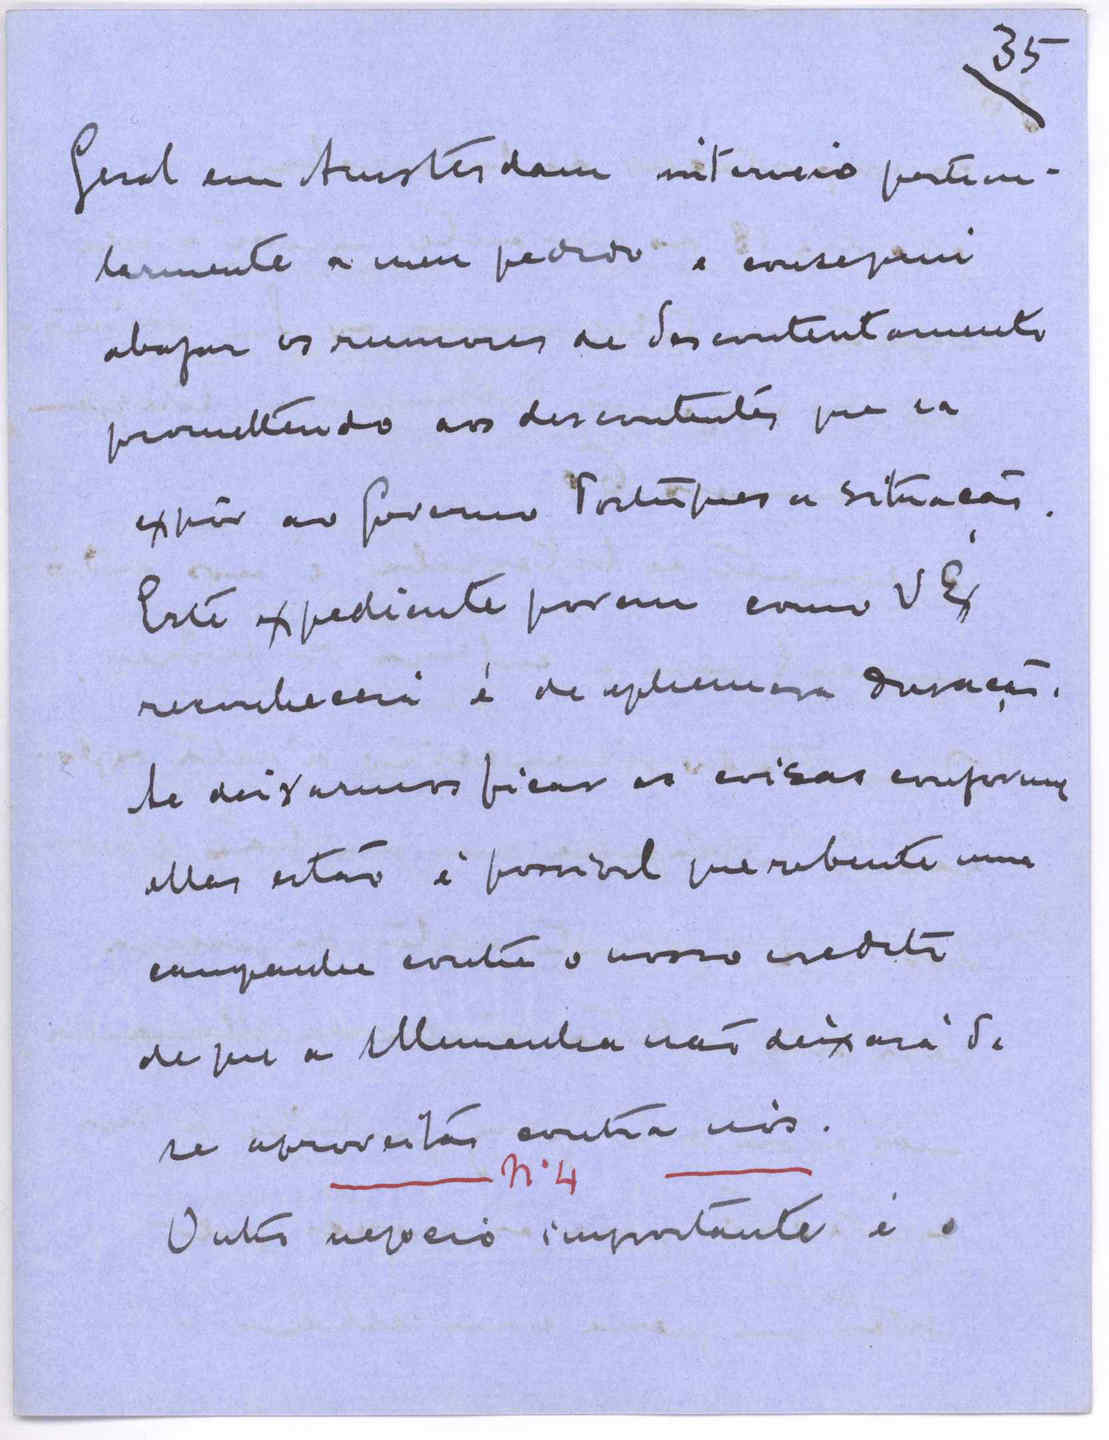 35
Geral em Amsterdam interveio particu-
larmente a meu pedido e consegui
abafar os rumores de descontentamento
promettendo aos descontentes que ia
expôr ao Governo Portugues a situação.
Este expediente porem como V Exª
reconhecerá é de ephemera duração.
Se deixarmos ficar as coisas conforme
ellas estão é possivel que rebente uma
campanha contra o nosso credito
de que a Allemanha não deixará de
se aproveitar contra nós.
Nº 4
Outro negocio importante é o